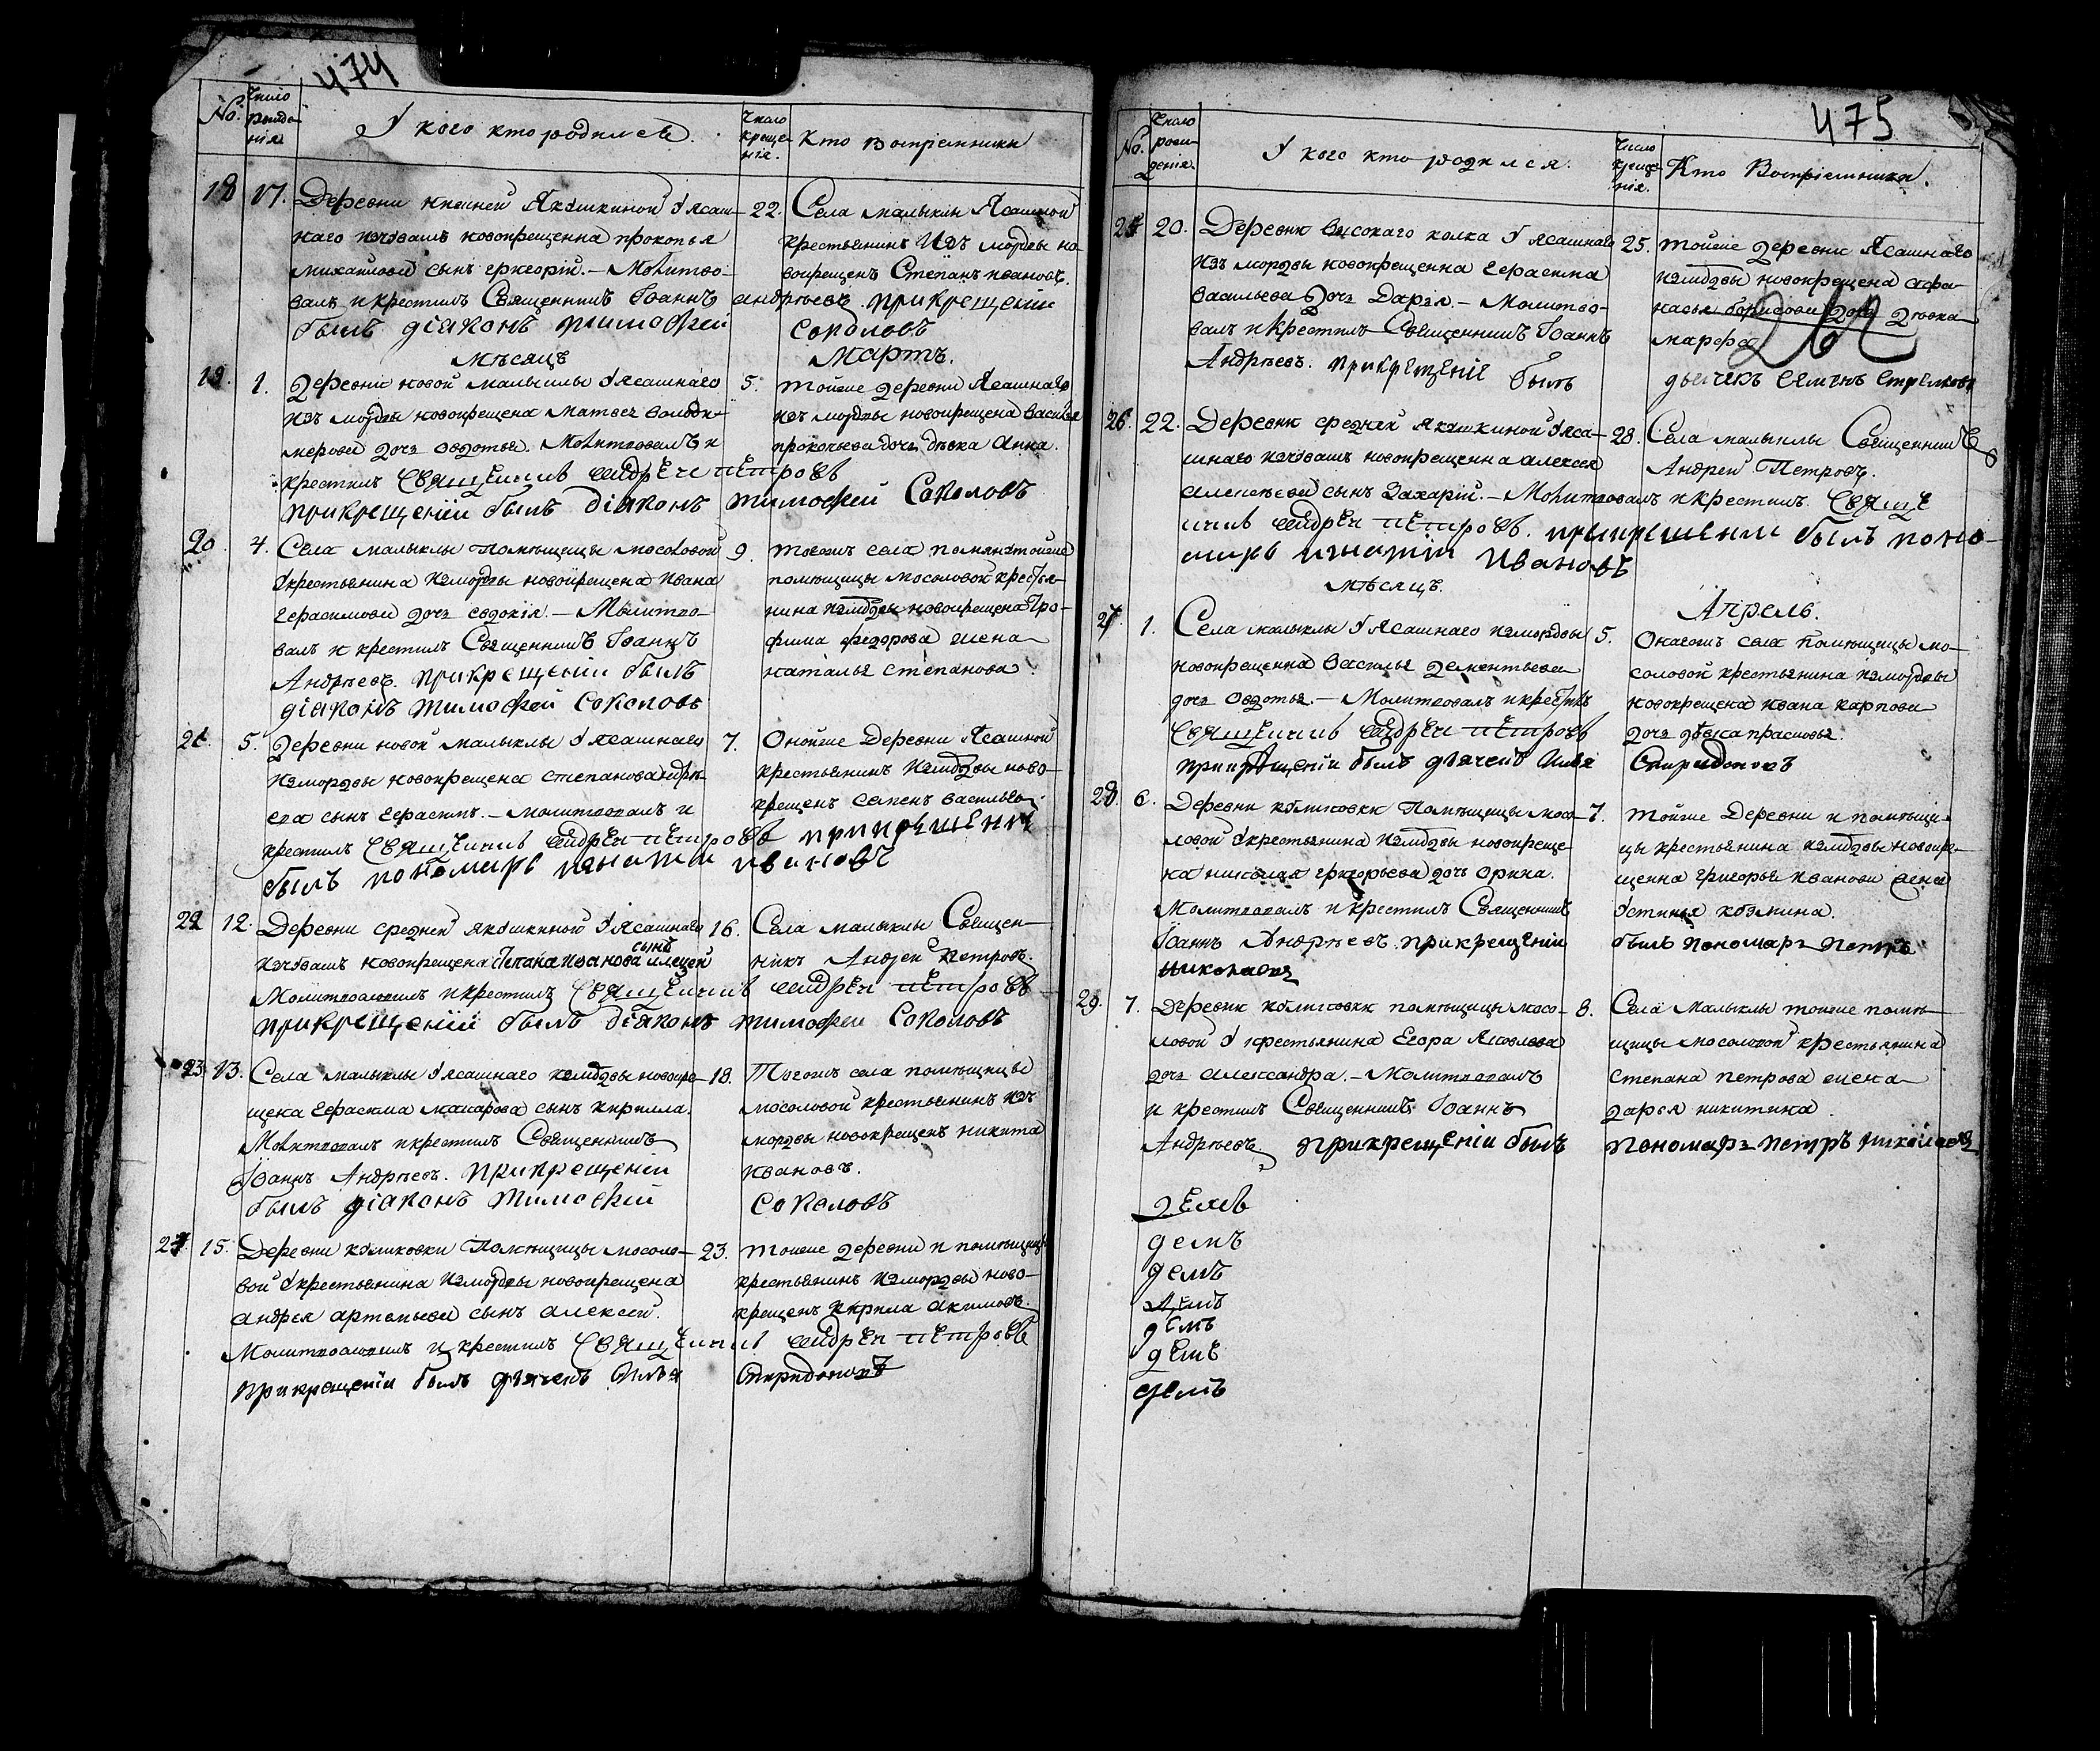 474
№.
Число рожде-нія
У кого кто родился.
Число креще-нія.
Кто восприемники
18
17.
Деревни нижней Якушкиной У ясаш-
наго изчувашъ новокрещенна прокопья
михаилова сынъ григорій. – Молитво-
валъ и крестилъ Священникъ Іоаннъ
былъ діаконъ тимофей
22.
Села малыклы Ясашной
крестьянинъ изъ мордвы но-
вокрещенъ Степанъ ивановъ.
андреевъ. прикрещеніи
Соколовъ
мѣсяцъ
Мартъ.
19.
1.
Деревни новой малыклы У ясашнаго
изъ мордвы новокрещена матвея володи-
мерова дочь овдотья. Молитвовалъ и
крестилъ Священникъ андреи петровъ
прикрещеніи былъ діаконъ тимофей Соколовъ
5.
тойже деревни Ясашнаго
изъ мордвы новокрещена василья
прокопьева дочь дѣвка Анна.
20.
4.
Села малыклы Помѣщицы мосоловой
Укрестьянина измордвы новокрещена ивана
герасимова дочь евдокія. – Молитво-
валъ и крестилъ Священникъ Іоаннъ
Андреевъ. прикрещеніи былъ
діаконъ тимофей Соколовъ
9.
тогожъ села помянутойже
помѣщицы мосоловой крестья-
нина измордвы новокрещена Тро-
фима федорова жена
наталья степанова.
21.
5.
Деревни новой малыклы У ясашнаго
измордвы новокрещена степана андре-
ева сынъ герасимъ. – молитвовалъ и
крестилъ Священникъ андреи петровъ прикрещеніи
былъ пономарь игнатіи ивановъ
7.
Онойже Деревни Ясашной
крестьянинъ измордвы ново-
крещенъ семенъ васильевъ.
22
12.
Деревни средней якушкиной У Ясашнаго
изчувашъ новокрещена степана иванова сынъ алексей
Молитвовалъ и крестилъ Священникъ андреи петровъ
прикрещеніи былъ діаконъ тимофеи Соколовъ
16.
Села малыклы Священ-
никъ Андреи Петровъ.
23
13.
Села малыклы У ясашнаго измордвы новокре-
щена герасима макарова сынъ кирилла.
Молитвовалъ и крестилъ Священникъ
Іоаннъ Андреевъ. прикрещеніи
былъ діаконъ тимофей
18.
Тогожъ села помѣщицы
мосоловой крестьянинъ изъ
мордвы новокрещенъ никита
ивановъ.
Соколовъ
24.
15.
Деревни куликовки Помѣщицы мосоло-
вой Укрестьянина измордвы новокрещена
андрея артемьева сынъ алексей.
Молитвовалъ и крестилъ Священникъ андреи петровъ
прикрещеніи былъ дьячекъ Илья Спиридоновъ
23.
тоиже деревни и помѣщицы
крестьянинъ измордвы ново-
крещенъ кирила акимовъ.
475
№.
Число рож-денія.
У кого кто родился.
Число креще-нія.
Кто Восприемники.
25
20.
Деревни высокаго колка У ясашнаго
изъ мордвы новокрещенна герасима
васильева дочь Дарья. – Молитво-
валъ и крестилъ Священникъ Іоаннъ
Андреевъ. прикрещеніи былъ
25.
тойже деревни Ясашнаго
измордвы новокрещена афа-
насья борисова дочь дѣвка
марфа
дьячекъ Семенъ Стрелковъ
26.
22.
Деревни средней якушкиной У яса-
шнаго изчувашъ новокрещенна алексея
алексѣева сынъ Захарій. – Молитвовалъ и крестилъ. Свяще
нникъ андреи петровъ. прикрещении былъ поно-
марь игнатіи Ивановъ
28.
Села малыклы Священникъ
Андреи Петровъ.
мѣсяцъ.
Апрель.
27.
1.
Села малыклы У Ясашнаго измордвы
новокрещенна василья дементьева
дочь овдотья. – Молитвовалъ и крестилъ
Священникъ андреи петровъ
прикрещеніи былъ дьячекъ Илья
5.
Онагожъ села Помѣщицы мо-
соловой крестьянина измордвы
новокрещена ивана карпова
дочь дѣвка прасковья.
Спиридоновъ
28.
6.
Деревни куликовки Помѣщицы мосо-
ловой Укрестьянина измордвы новокреще-
на николая григорьева дочь орина.
Молитвовалъ и крестилъ Священникъ
Іоаннъ Андреевъ. прикрещеніи
николаевъ
7.
тойже Деревни и помѣщи-
цы крестьянина измордвы новокре-
щенна григорья иванова жена
Устинья козмина.
былъ пономарь петръ
29.
7.
Деревни куликовки помѣщицы мосо-
ловой У крестьянина Егора Яковлева
дочь александра. – Молитвовалъ
и крестилъ Священникъ Іоаннъ
Андреевъ прикрещеніи былъ
8.
Села Малыклы тоиже помѣ-
щицы мосоловой крестьянина
степана петрова жена
дарья никитина.
пономарь петръ николаевъ